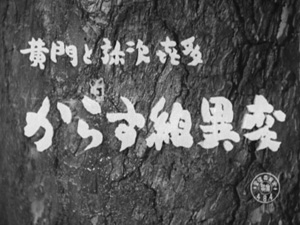 黄門と弥次喜多
からす組異変